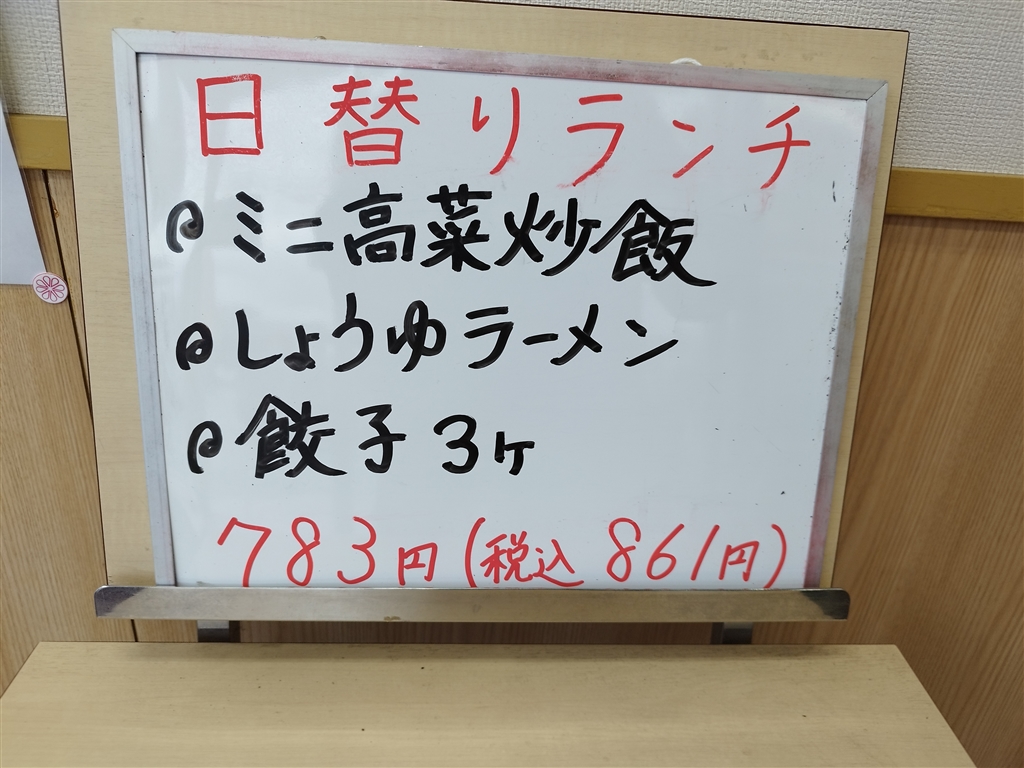 日替りランチ
ミニ高菜炒飯
しょうゆラーメン
餃子3ヶ
783円(税込861円)